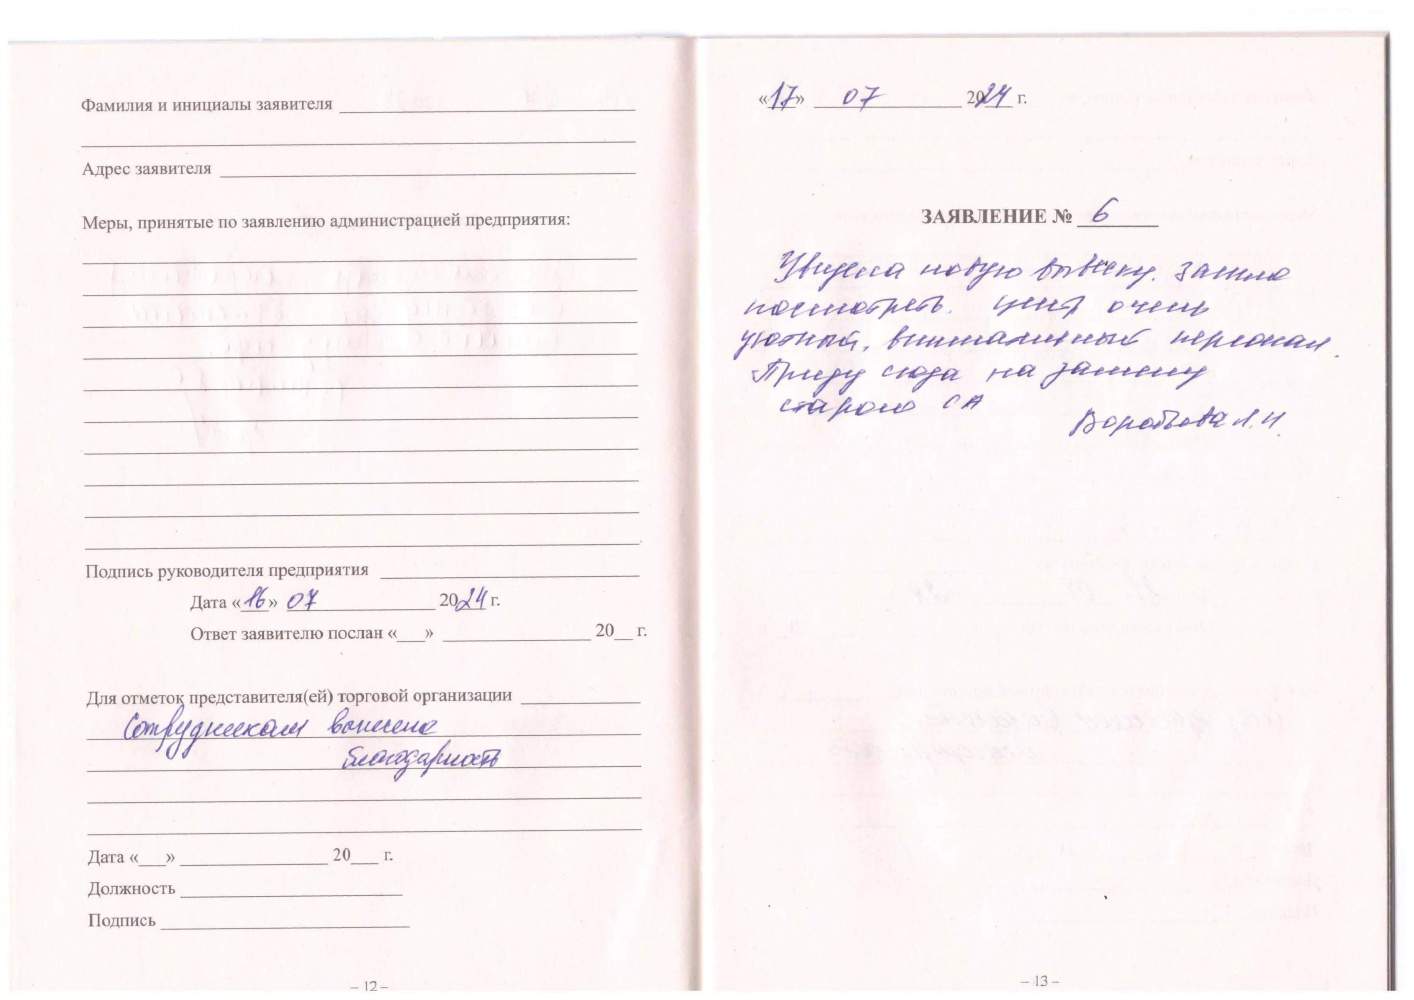 Фамилия и инициалы заявителя
Адрес заявителя
Меры, принятые по заявлению администрацией предприятия:
Подпись руководителя предприятия
Дата «16» 07 2024 г.
Ответ заявителю послан «___» ____ 20__ г.
Для отметок представителя(ей) торговой организации
Сотрудникам вынесена
благодарность
Дата «___» ____ 20___ г.
Должность
Подпись
– 12 –
«17» 07 2024 г.
ЗАЯВЛЕНИЕ № 6
Увидела новую вывеску. Зашла
посмотреть. Центр очень
уютный, внимательный персонал.
Приду сюда на замену
старого СА
Воробьева Л. И.
– 13 –